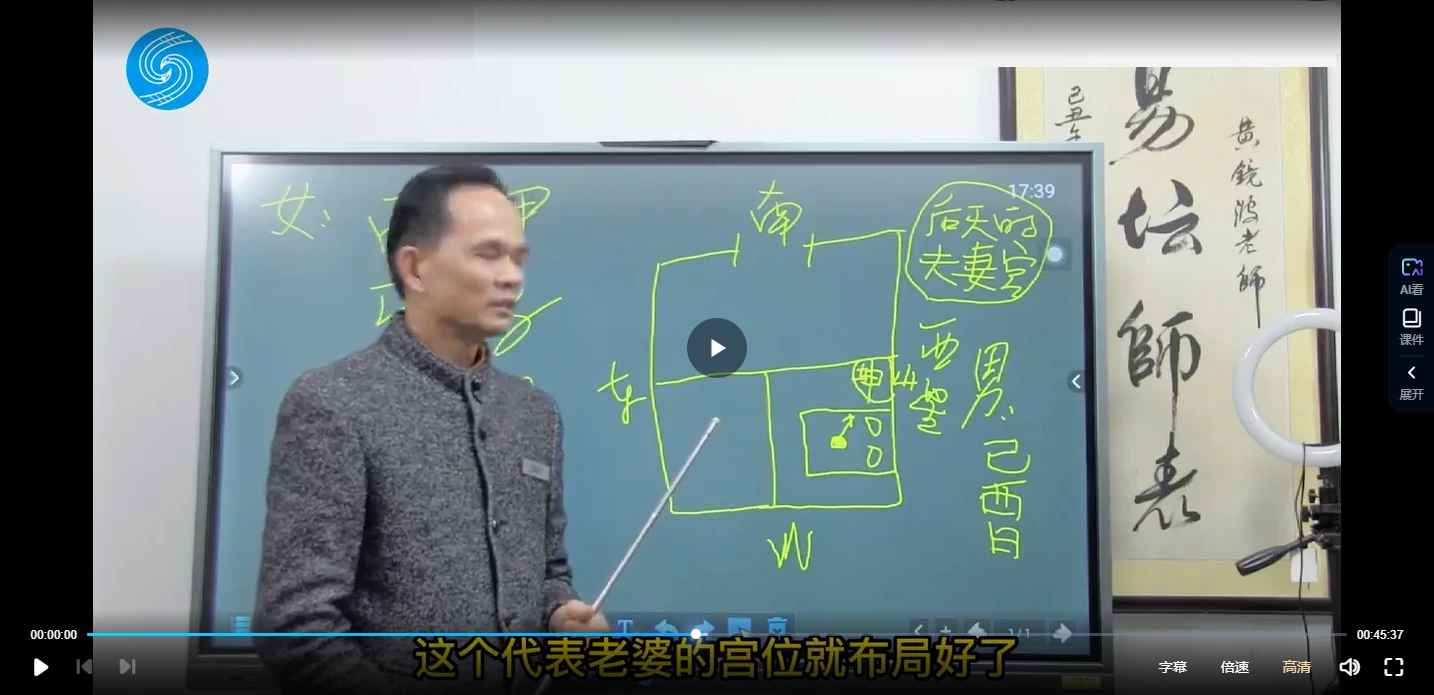 易坛師表
黃鏡波老師
己丑年
17:39
女：
南
后天的
夫妻宫
西
男：
己
酉
日
AI看
课件
展开
这个代表老婆的宫位就布局好了
T
1/1
00:00:00
00:45:37
字幕
倍速
高清